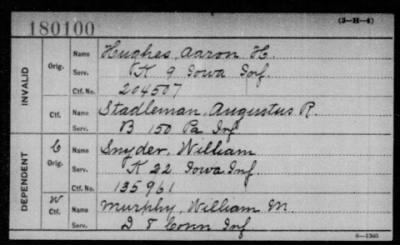 180100
(3-H-4)
INVALID
Orig. Name Hughes, Aaron H.
Serv. K 9 Iowa Inf.
Ctf. No. 204507
Ctf. Name Stadleman, Augustus R.
Serv. B 150 Pa Inf
DEPENDENT
C Orig. Name Snyder, William
Serv. K 22 Iowa Inf.
Ctf. No. 135961
W Ctf. Name Murphy, William M.
Serv. D 8 Conn Inf